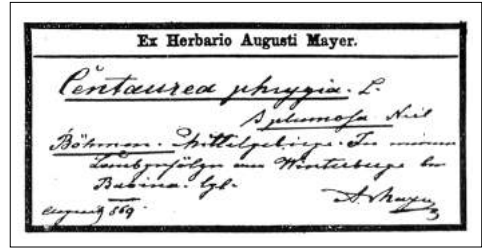 Ex Herbario Augusti Mayer.
Centaurea phrygia. L.
β plumosa Neil
Böhmen. Mittelgebirge. In
am Winterberge
Basina.
August 869.
A. Mayer